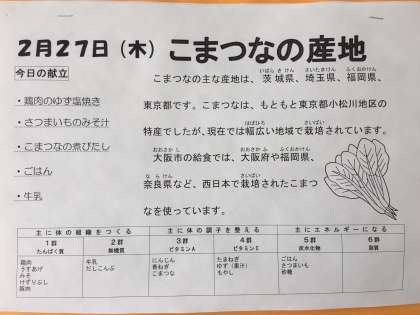 2月27日（木）こまつなの産地
今日の献立
・鶏肉のゆず塩焼き
・さつまいものみそ汁
・こまつなの煮びたし
・ごはん
・牛乳
こまつなの主な産地は、茨城県、埼玉県、福岡県、
いばらきけん さいたまけん ふくおかけん
東京都です。こまつなは、もともと東京都小松川地区の
特産でしたが、現在では幅広い地域で栽培されています。
はばひろ さいばい
大阪市の給食では、大阪府や福岡県、
おおさかし おおさかふ ふくおかけん
奈良県など、西日本で栽培されたこまつ
ならけん さいばい
なを使っています。
主に体の組織をつくる 主に体の調子を整える 主にエネルギーになる
1群 2群 3群 4群 5群 6群
たんぱく質 無機質 ビタミンA ビタミンC 炭水化物 脂質
鶏肉 牛乳 にんじん たまねぎ ごはん
うすあげ だしこんぶ 青ねぎ ゆず（果汁） さつまいも
みそ こまつな もやし 砂糖
けずりぶし
豚肉